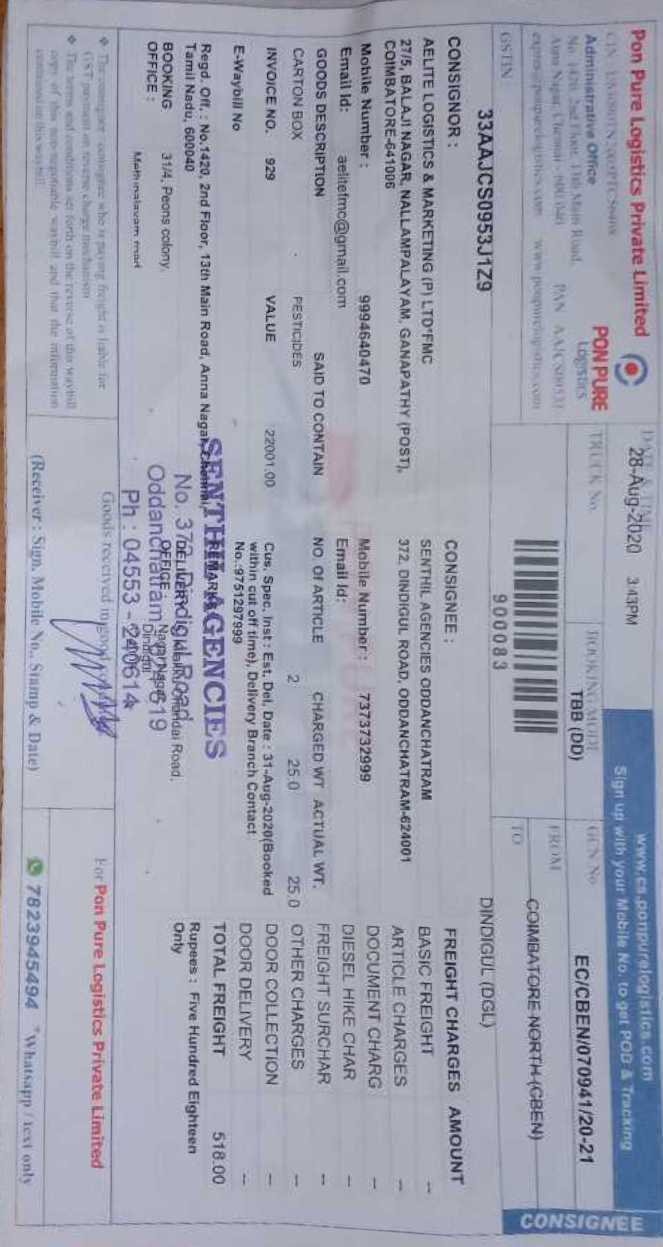 Pon Pure Logistics Private Limited
Administrative Office
No. 1420, 2nd Floor, 13th Main Road,
Anna Nagar, Chennai - 600 040
www.ponpurelogistics.com
PON PURE
Logistics
GSTIN
33AAJCS0953J1Z9
DATE & TIME
28-Aug-2020 3:43PM
TRUCK No.
BOOKING MODE
TBB (DD)
900083
www.cs.ponpurelogistics.com
Sign up with your Mobile No. to get POD & Tracking
GCN No
EC/CBEN/070941/20-21
FROM
COIMBATORE NORTH (CBEN)
TO
DINDIGUL (DGL)
CONSIGNEE
CONSIGNOR :
AELITE LOGISTICS & MARKETING (P) LTD*FMC
27/5, BALAJI NAGAR, NALLAMPALAYAM, GANAPATHY (POST),
COIMBATORE-641006
Mobile Number : 9994640470
Email Id: aelitefmc@gmail.com
CONSIGNEE :
SENTHIL AGENCIES ODDANCHATRAM
372, DINDIGUL ROAD, ODDANCHATRAM-624001
Mobile Number : 7373732999
Email Id:
GOODS DESCRIPTION SAID TO CONTAIN NO. Of ARTICLE CHARGED WT ACTUAL WT.
CARTON BOX PESTICIDES 2 25.0 25.0
INVOICE NO. 929 VALUE 22001.00
E-Waybill No
Cus. Spec. Inst : Est. Del. Date : 31-Aug-2020(Booked
within cut off time), Delivery Branch Contact
No.:9751297999
Regd. Off. : No.1420, 2nd Floor, 13th Main Road, Anna Nagar, Chennai,
Tamil Nadu, 600040
REMARK
BOOKING OFFICE :
31/4, Peons colony,
DELIVERY OFFICE
Road,
Dindigul
SENTHIL AGENCIES
No. 372, Dindigul Road
Oddanchatram - 624 619
Ph : 04553 - 240614
FREIGHT CHARGES AMOUNT
BASIC FREIGHT --
ARTICLE CHARGES --
DOCUMENT CHARG --
DIESEL HIKE CHAR --
FREIGHT SURCHAR --
OTHER CHARGES --
DOOR COLLECTION --
DOOR DELIVERY --
TOTAL FREIGHT 518.00
Rupees : Five Hundred Eighteen
Only
❖ The consignor / consignee who is paying freight is liable for
GST payment on reverse charge mechanism
❖ The terms and conditions set forth on the reverse of this waybill
copy of this non-negotiable waybill and that the information
contained on this waybill
Goods received in good
(Receiver : Sign, Mobile No., Stamp & Date)
For Pon Pure Logistics Private Limited
7823945494 *Whatsapp / text only